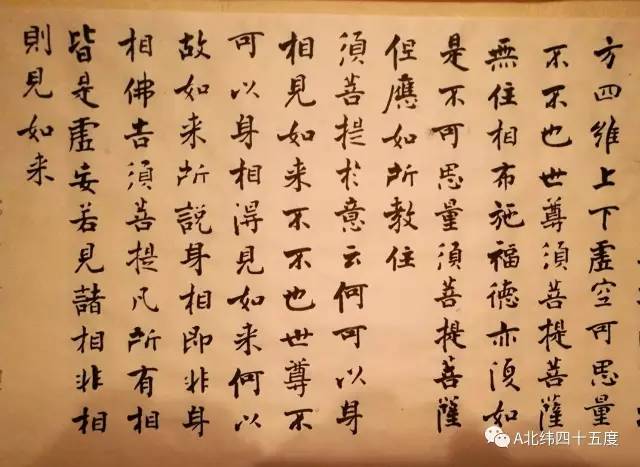 方四維上下虛空可思量
不不也世尊須菩提菩薩
無住相布施福德亦復如
是不可思量須菩提菩薩
但應如所教住
須菩提於意云何可以身
相見如来不不也世尊不
可以身相得見如来何以
故如来所說身相即非身
相佛告須菩提凡所有相
皆是虛妄若見諸相非相
則見如来
A北纬四十五度